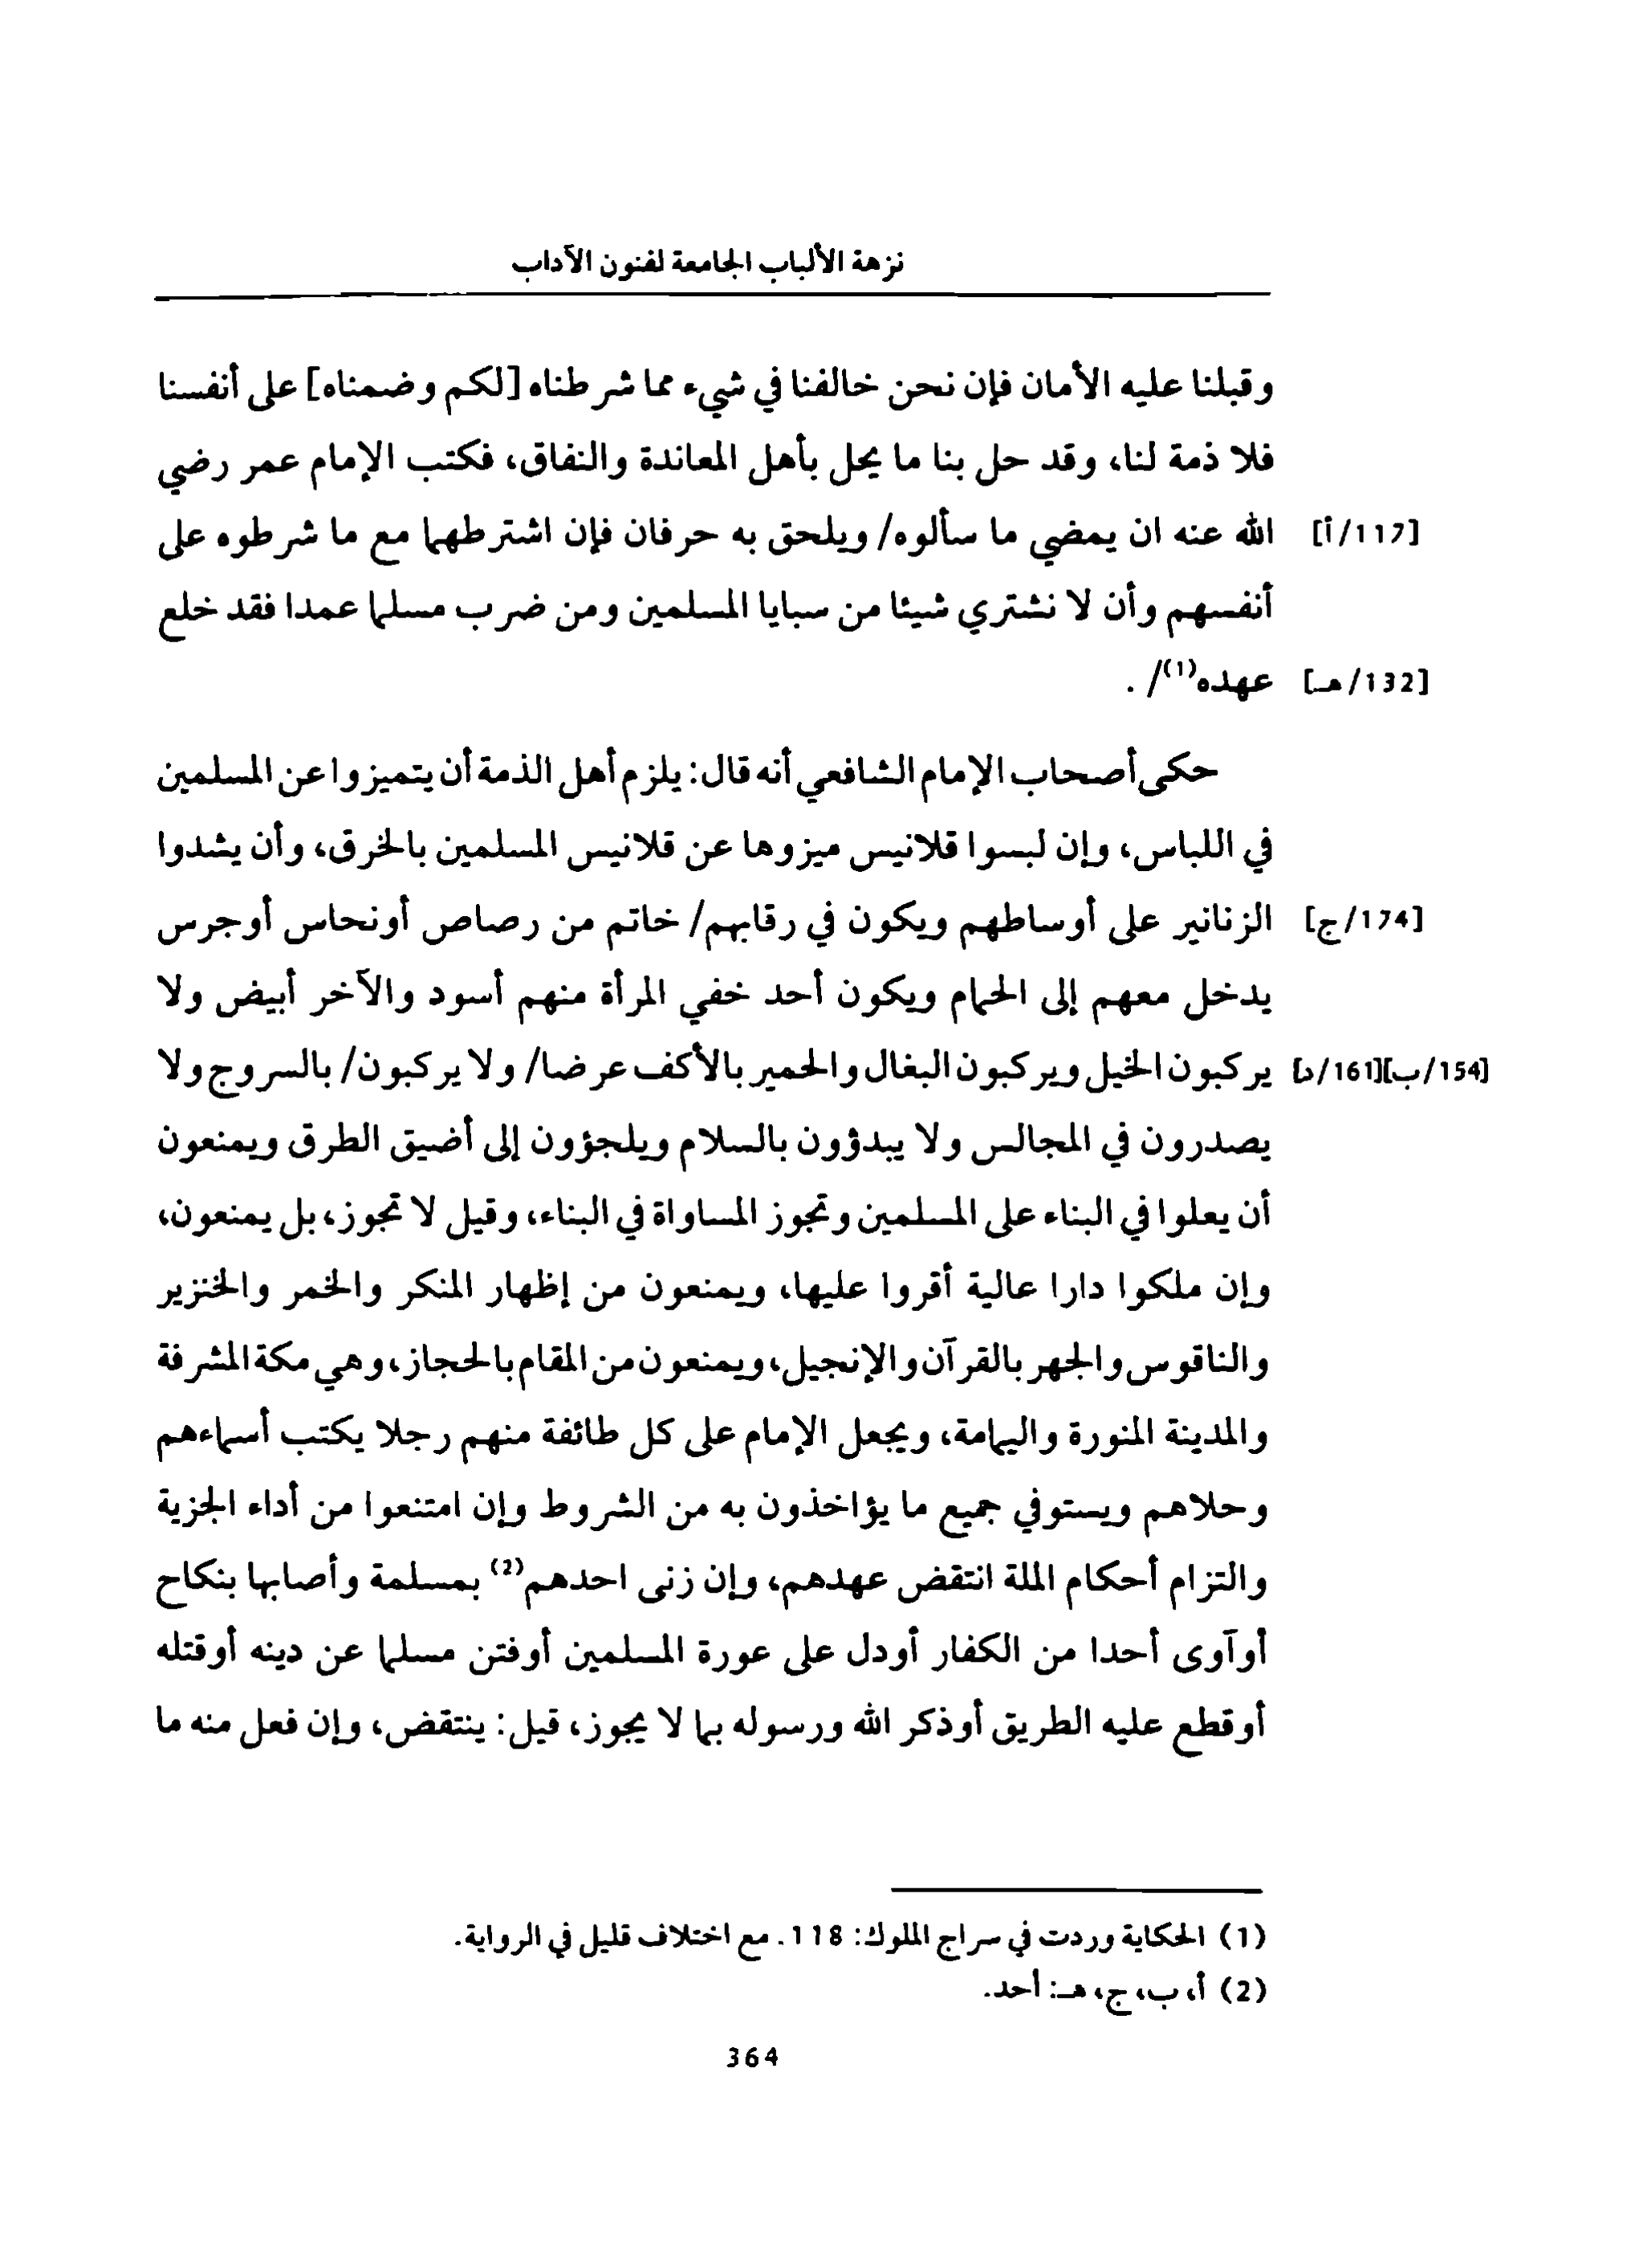 نزهة الألباب الجامعة لفنون الآداب
وقبلنا عليه الأمان فإن نحن خالفنا في شيء مما شرطناه [لكم وضمناه] على أنفسنا
فلا ذمة لنا، وقد حل بنا ما يحل بأهل المعاندة والنفاق، فكتب الإمام عمر رضي
[117/أ] الله عنه ان يمضي ما سألوه/ ويلحق به حرفان فإن اشترطهما مع ما شرطوه على
أنفسهم وأن لا نشتري شيئا من سبايا المسلمين ومن ضرب مسلما عمدا فقد خلع
[132/هـ] عهده(1)/ .
حكى أصحاب الإمام الشافعي أنه قال: يلزم أهل الذمة أن يتميزوا عن المسلمين
في اللباس، وإن لبسوا قلانيس ميزوها عن قلانيس المسلمين بالخرق، وأن يشدوا
[174/ج] الزنانير على أوساطهم ويكون في رقابهم/ خاتم من رصاص أونحاس أوجرس
يدخل معهم إلى الحمام ويكون أحد خفي المرأة منهم أسود والآخر أبيض ولا
[154/ب][161/د] يركبون الخيل ويركبون البغال والحمير بالأكف عرضا/ ولا يركبون/ بالسروج ولا
يصدرون في المجالس ولا يبدؤون بالسلام ويلجؤون إلى أضيق الطرق ويمنعون
أن يعلوا في البناء على المسلمين وتجوز المساواة في البناء، وقيل لا تجوز، بل يمنعون،
وإن ملكوا دارا عالية أقروا عليها، ويمنعون من إظهار المنكر والخمر والخنزير
والناقوس والجهر بالقرآن والإنجيل، ويمنعون من المقام بالحجاز، وهي مكة المشرفة
والمدينة المنورة واليمامة، ويجعل الإمام على كل طائفة منهم رجلا يكتب أسماءهم
وحلاهم ويستوفي جميع ما يؤاخذون به من الشروط وإن امتنعوا من أداء الجزية
والتزام أحكام الملة انتقض عهدهم، وإن زنى احدهم(2) بمسلمة وأصابها بنكاح
أوآوى أحدا من الكفار أودل على عورة المسلمين أوفتن مسلما عن دينه أوقتله
أوقطع عليه الطريق أوذكر الله ورسوله بما لا يجوز، قيل: ينتقض، وإن فعل منه ما
(1) الحكاية وردت في سراج الملوك: 118. مع اختلاف قليل في الرواية.
(2) أ، ب، ج، هـ: أحد.
364